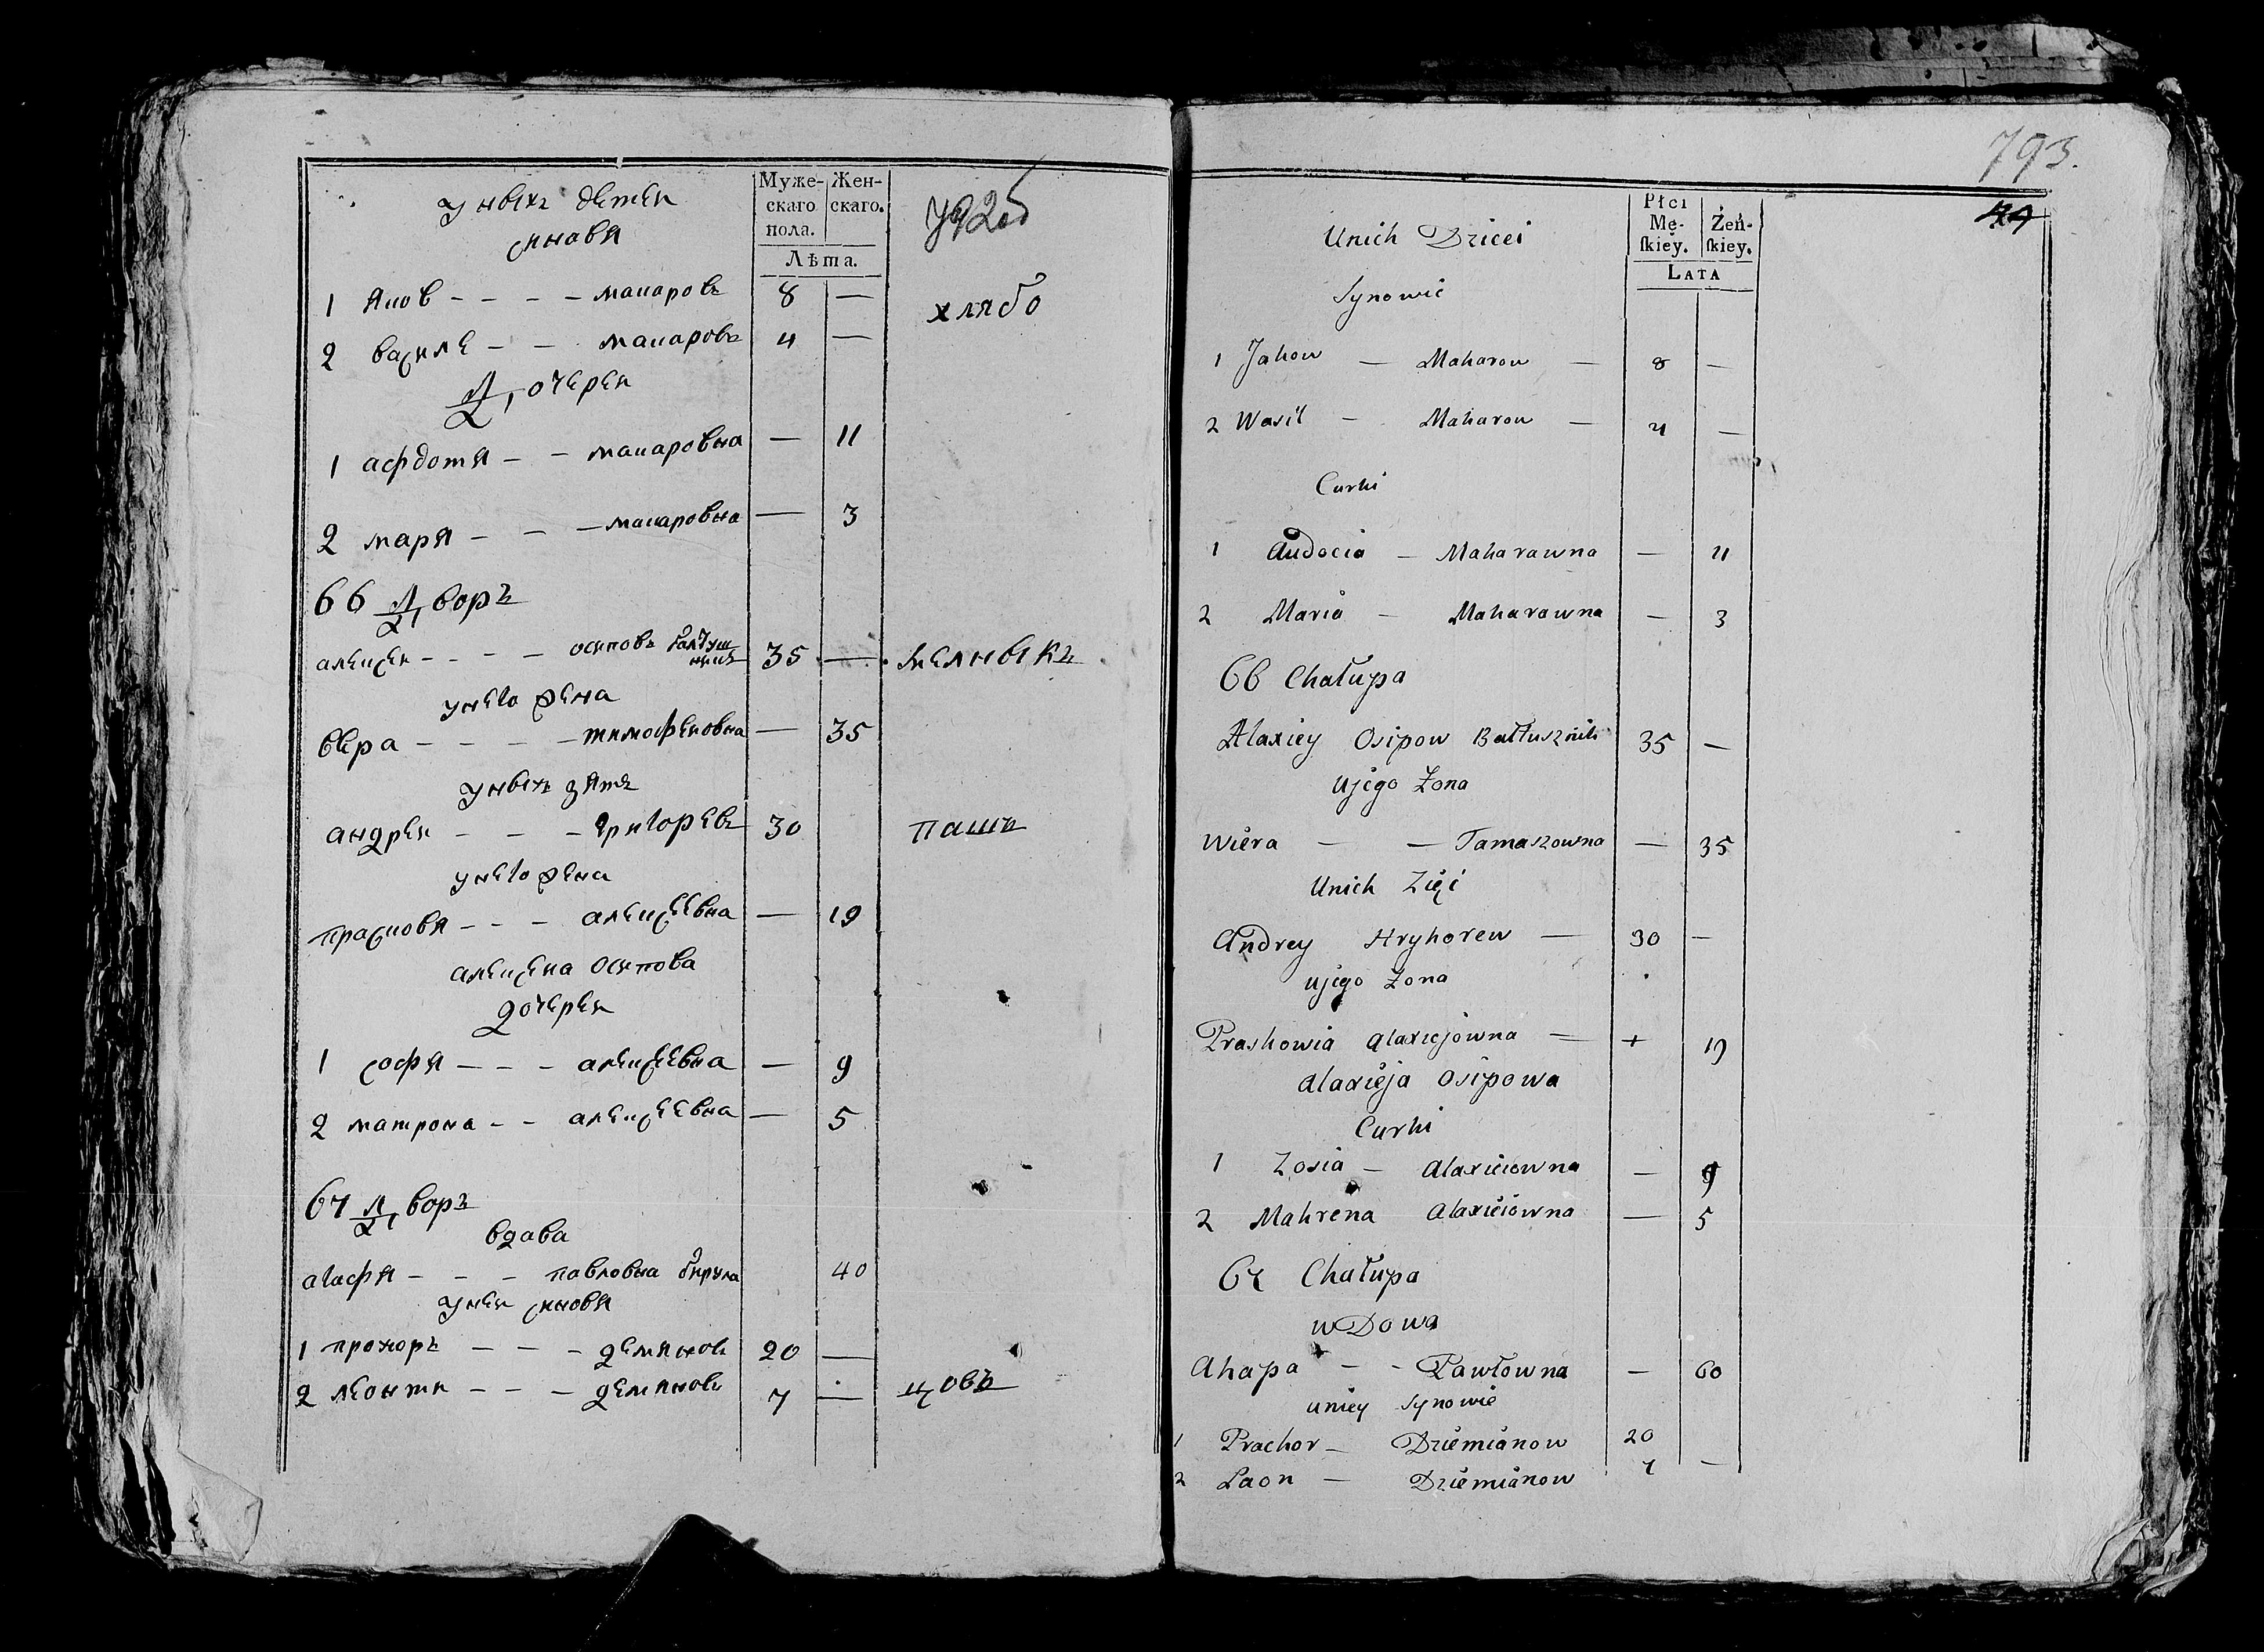 Муже-
скаго
пола.
Жен-
скаго.
Лѣта.
792об
унихъ детеи
синовя
1 яков - - - - макаровъ 8 —
хлябо
2 василе - - макаровъ 4 —
дочереи
1 афдотя - - макаровна — 11
2 маря - - - макаровна — 3
66 дворъ
алексеи - - - - осиповъ балтуш
никъ 35 — мелныкъ
унего жена
вера - - - - тимофеиовна — 35
унихъ зять
андреи - - - григоревъ 30 пашъ
унего жена
прасковя - - - алексеевна — 19
алексеиа осипова
дочереи
1 софя - - - алексеевна — 9
2 матрона - - алексеевна — 5
67 дворъ
вдава
агафя - - - павловна бирула 40
унеи синовя
1 прохоръ - - - демяновъ 20 —
2 леонти - - - демяновъ 7 — цовъ
793.
Płci
Mę-
ſkiey.
Żeń-
ſkiey.
LATA
Unich Dzicei
Synowie
1 Jakow — Makarow — 8 —
2 Wasil - Makarow — 4 —
Curki
1 Audocia — Makarawna — 11
2 Maria — Makarawna — 3
66 Chałupa
Alaxiey Osipow Bałtusznik 35 —
Ujego Żona
Wiera — — Tamaszowna — 35
Unich Zięć
Andrey Hryhorew — 30 —
ujego Żona
Praskowia Alaxiejowna — + 19
Alaxieja Osipowa
Curki
1 Zosia — Alaxieiowna — 9
2 Mahrena Alaxieiowna — 5
67 Chałupa
wDowa
Ahapa - - Pawłowna — 60
uniey Synowie
1 Prachor — Dziemianow 20
2 Laon — Dziemianow 7 —